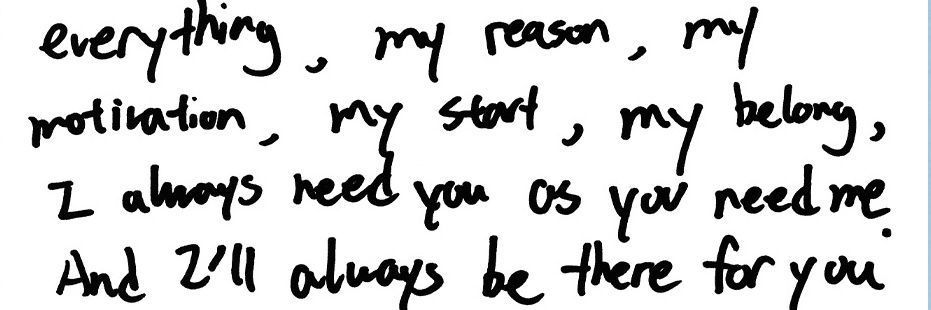 everything, my reason, my
motivation, my start, my belong,
I always need you as you need me.
And I'll always be there for you